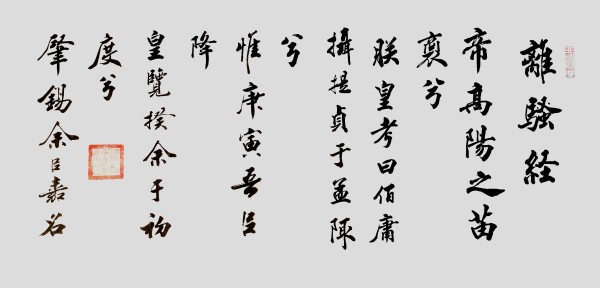 離騷経
帝高陽之苗
裔兮
朕皇考曰伯庸
攝提貞于孟陬
兮
惟庚寅吾㠯
降
皇覽揆余于初
度兮
肇錫余㠯嘉名